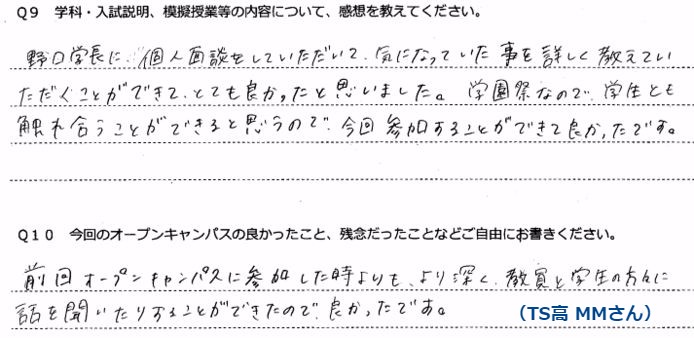 Q9 学科・入試説明、模擬授業等の内容について、感想を教えてください。
野口学長に、個人面談をしていただいて、気になっていた事を詳しく教えてい
ただくことができて、とても良かったと思いました。学園祭なので、学生とも
触れ合うことができると思うので、今回参加することができて良かったです。
Q10 今回のオープンキャンパスの良かったこと、残念だったことなどご自由にお書きください。
前回オープンキャンパスに参加した時よりも、より深く、教員と学生の方々に
話を聞いたりすることができたので、良かったです。
（TS高 MMさん）